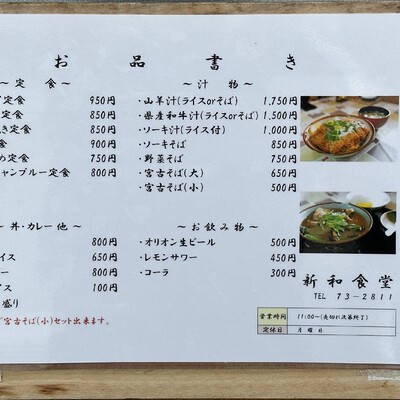 お品書き
～定食～
定食 950円
定食 850円
き定食 850円
食 900円
め定食 750円
ャンプルー定食 800円
～汁物～
・山羊汁(ライスorそば) 1,750円
・県産和牛汁(ライスorそば) 1,500円
・ソーキ汁(ライス付) 1,000円
・ソーキそば 850円
・野菜そば 750円
・宮古そば(大) 650円
・宮古そば(小) 500円
～丼・カレー他～
800円
イス 650円
ー 800円
イス 100円
盛り
宮古そば(小)セット出来ます。
～お飲み物～
・オリオン生ビール 500円
・レモンサワー 450円
・コーラ 300円
新和食堂
TEL 73-2811
営業時間 11:00～(売切れ次第終了)
定休日 月曜日